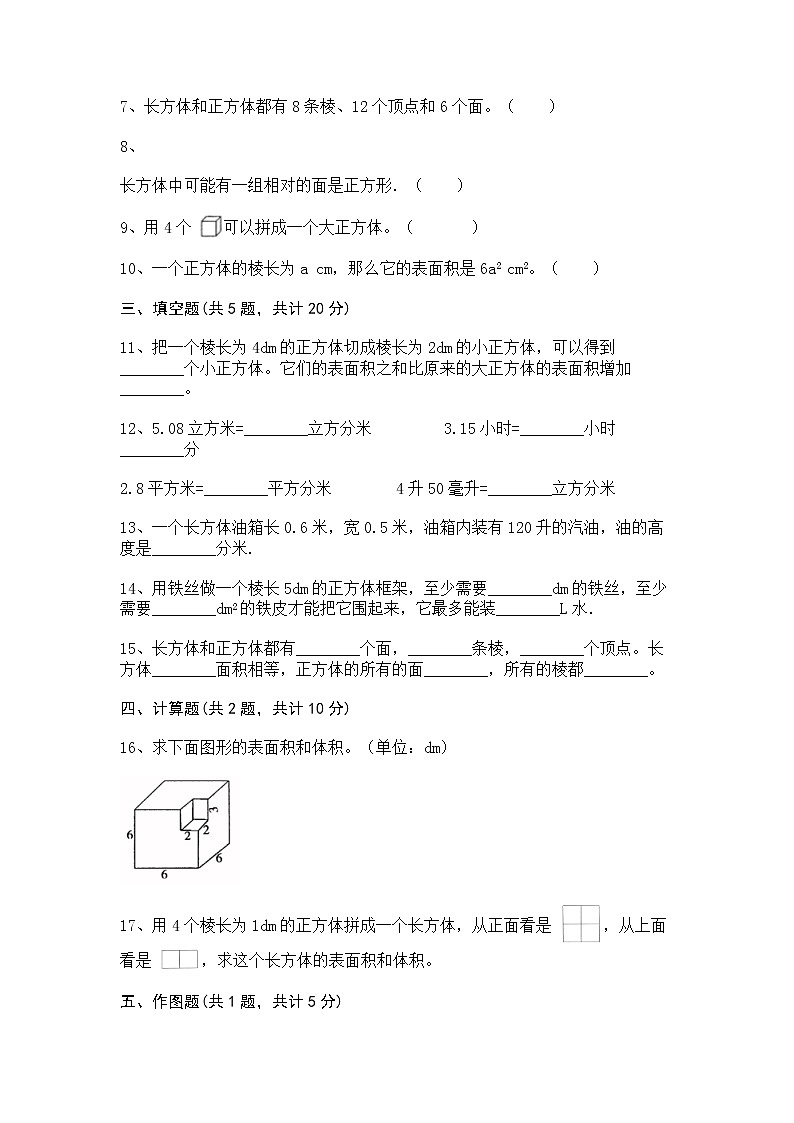 7、长方体和正方体都有8条棱、12个顶点和6个面。（　　）
8、
长方体中可能有一组相对的面是正方形.（　　）
9、用4个 可以拼成一个大正方体。（　　　）
10、一个正方体的棱长为a cm，那么它的表面积是6a² cm²。（　　）
三、填空题(共5题，共计20分)
11、把一个棱长为4dm的正方体切成棱长为2dm的小正方体，可以得到
________个小正方体。它们的表面积之和比原来的大正方体的表面积增加
________。
12、5.08立方米=________立方分米　　　　3.15小时=________小时
________分
2.8平方米=________平方分米　　　　4升50毫升=________立方分米
13、一个长方体油箱长0.6米，宽0.5米，油箱内装有120升的汽油，油的高
度是________分米.
14、用铁丝做一个棱长5dm的正方体框架，至少需要________dm的铁丝，至少
需要________dm²的铁皮才能把它围起来，它最多能装________L水.
15、长方体和正方体都有________个面，________条棱，________个顶点。长
方体________面积相等，正方体的所有的面________，所有的棱都________。
四、计算题(共2题，共计10分)
16、求下面图形的表面积和体积。（单位：dm）
3
6
2
2
6
6
17、用4个棱长为1dm的正方体拼成一个长方体，从正面看是 ，从上面
看是 ，求这个长方体的表面积和体积。
五、作图题(共1题，共计5分)